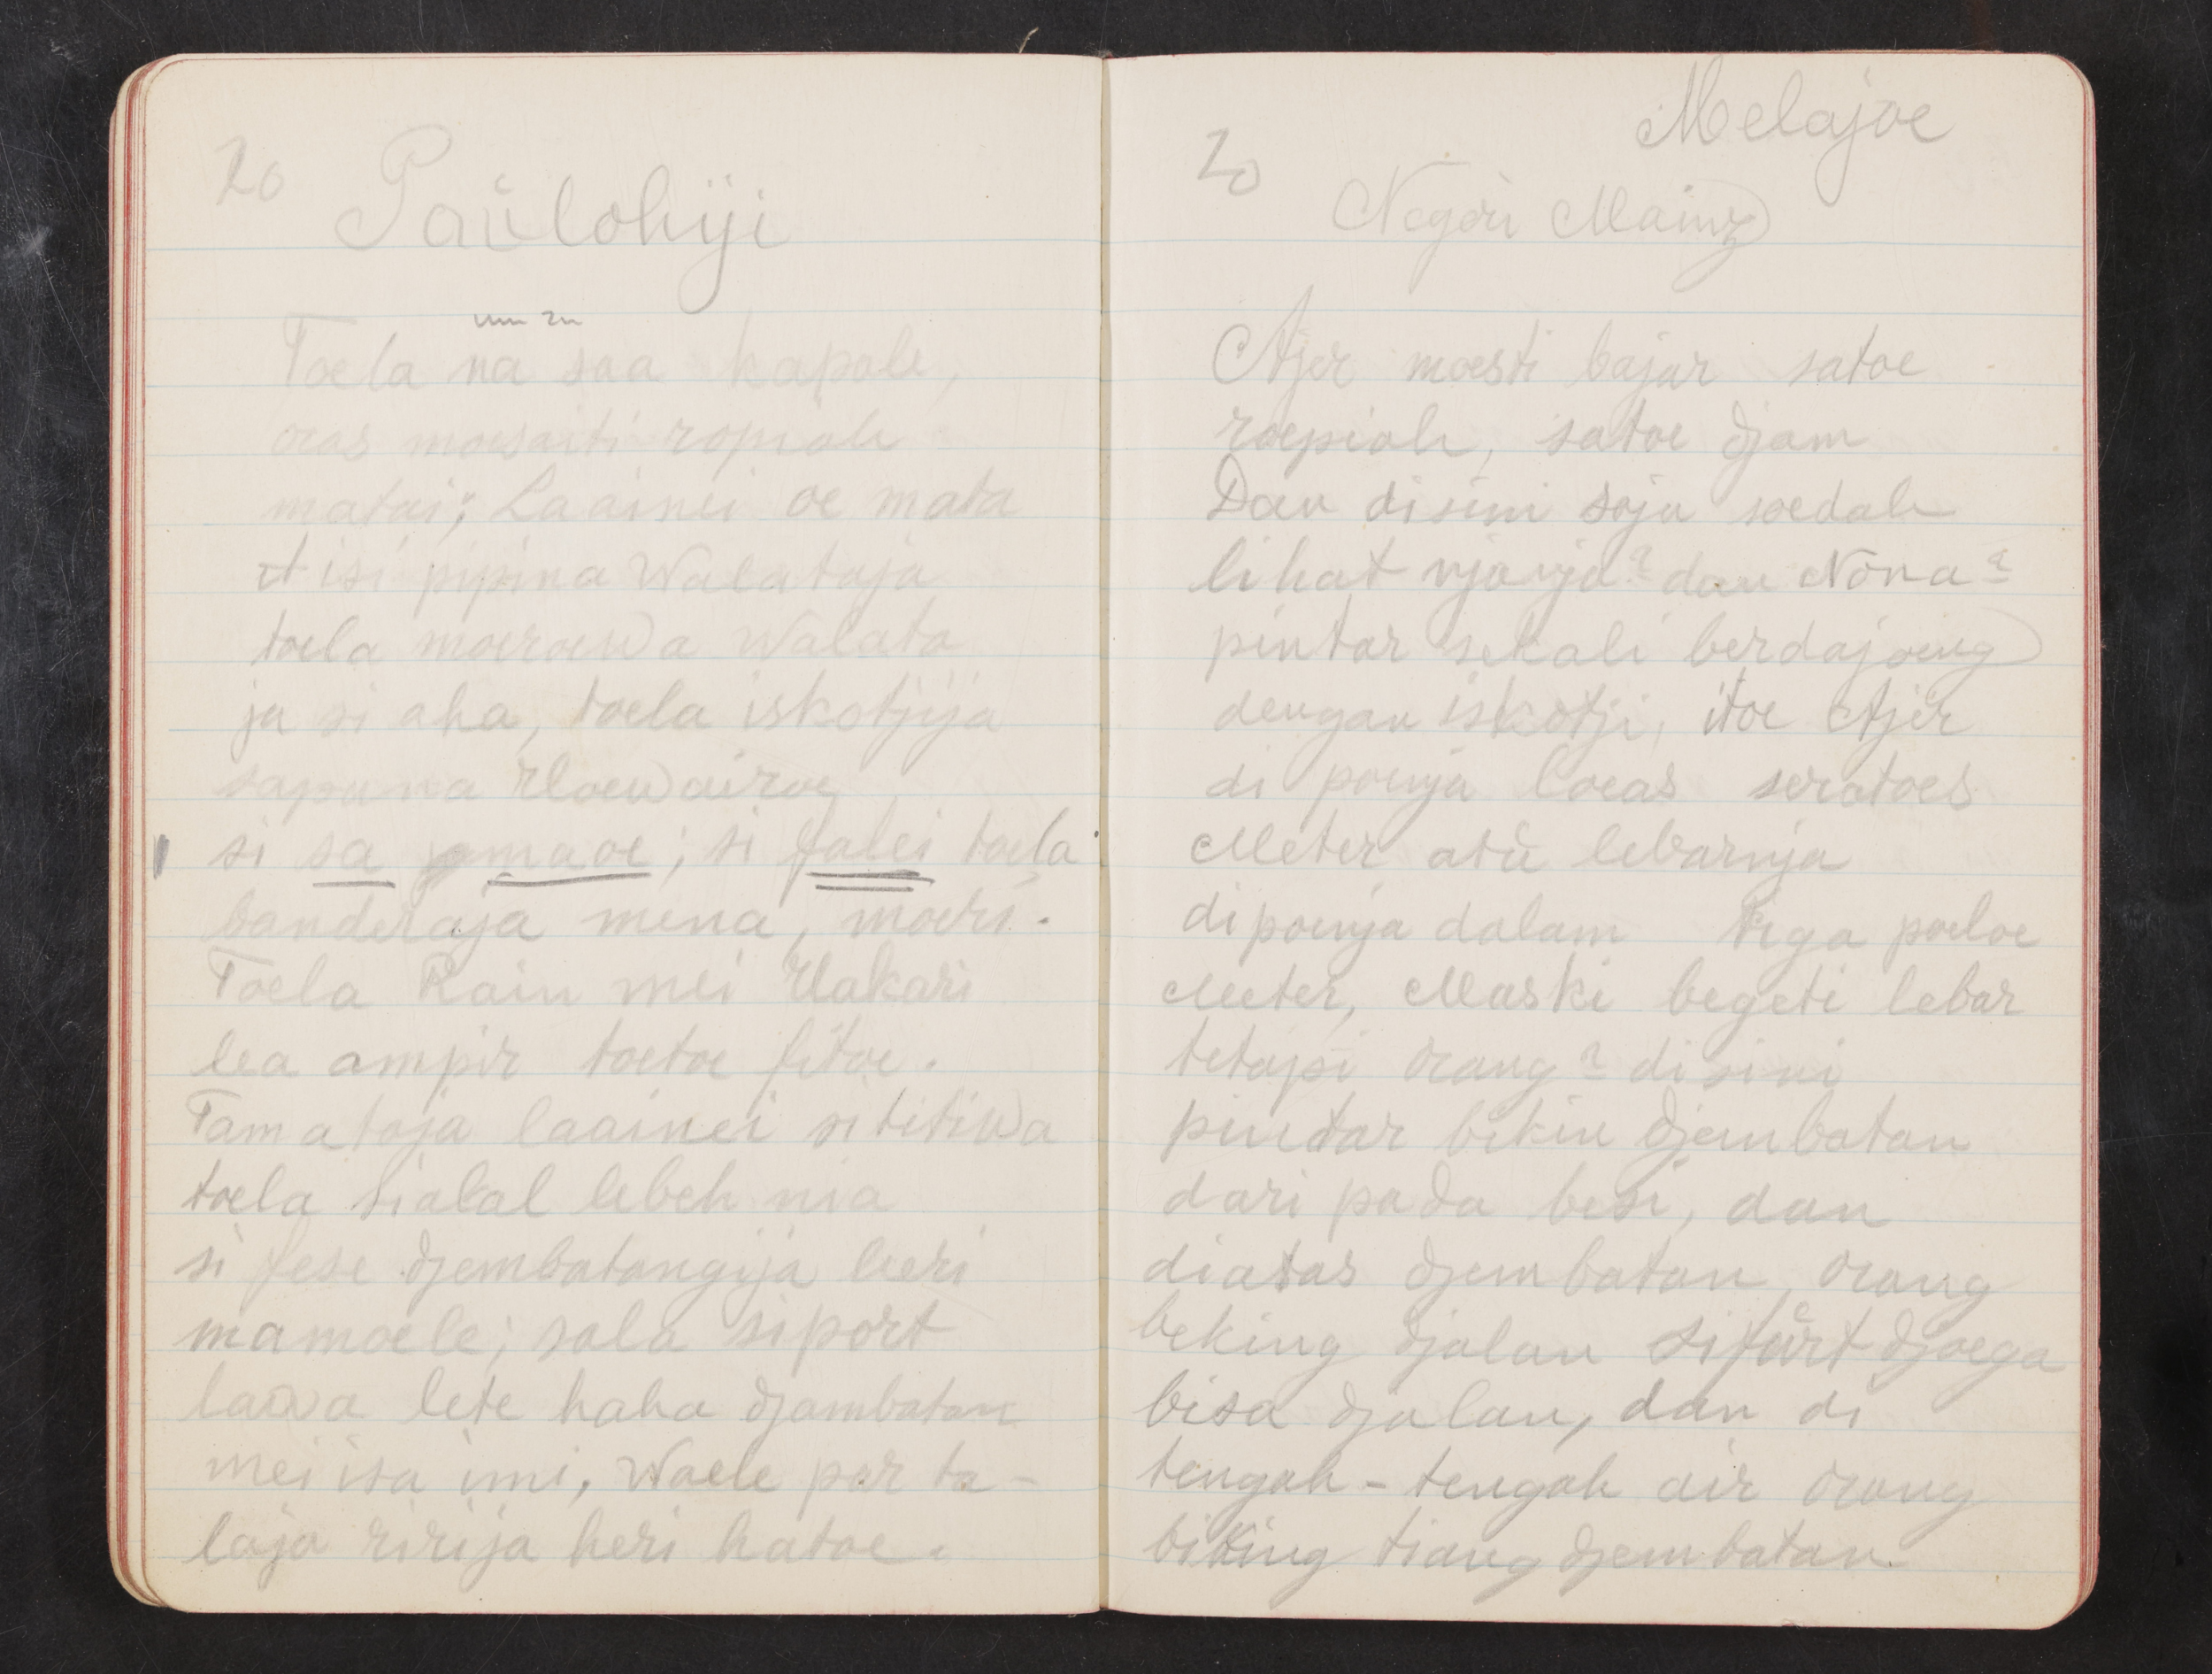 20
Paŭlohiji
um zu
Toela na saa kapale,
oras moesaiti ropiah
matai; Laainei oe mata
isi pipina Walataja
toela moeroewa Walata
ja si aha, toela iskotjija
sapa na
si sa maoe; si falei toela
banderaja mena, moeri.
Toela Rain mei Makari
lea ampir toetoe fitoe.
Tamataja laainei si titiwa
toela sialal lebeh nia
si fese djembatangija heri
mamoele; sala siport
lawa lete haha djambatan
mei isa imi, Waele par ta-
laja ririja heri hatoe.
Melajoe
20
Negori Mainz
Ajer moesti bajar satoe
roepiah, satoe djam
Dan disini saja soedah
lihat njonja2 dan Nona2
pintar sekali berdajoeng
dengan iskotji, itoe Ajer
di poenja loeas seratoes
Meter atŭ lebarnja
dipoenja dalam tiga poeloe
Meter, Maski begeti lebar
tetapi orang2 disini
pintar bikin djembatan
dari pada besi, dan
diatas djembatan, orang
beking djalan sifŭrt djoega
bisa djalan, dan di
tengah-tengah air orang
biking tiang djembatan.